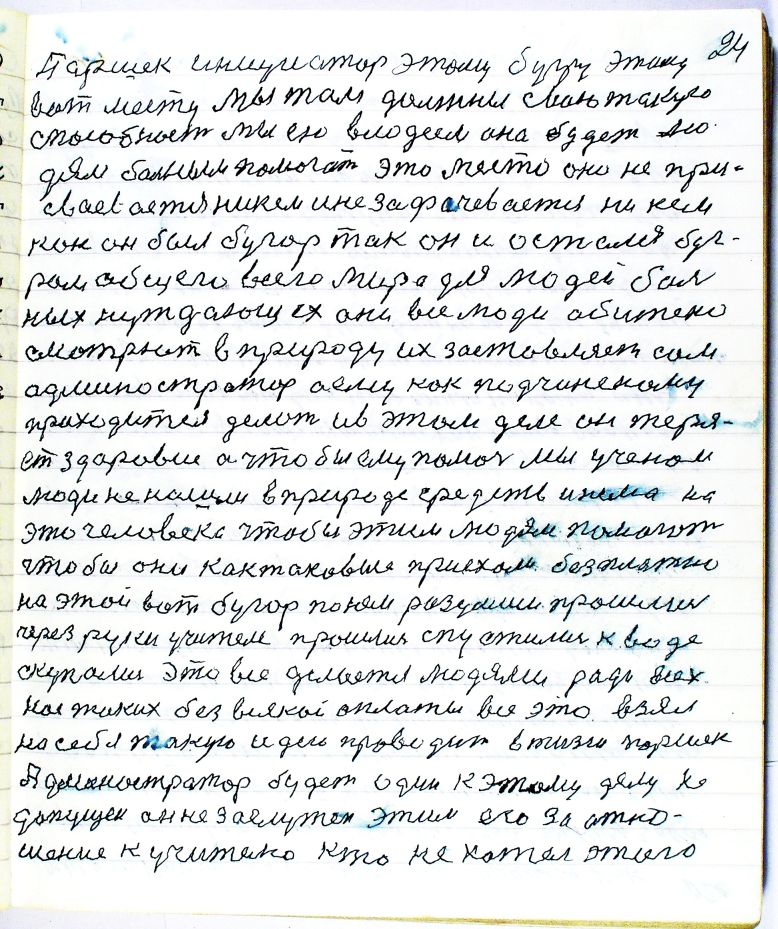 24
Паршек инициатор этому бугру этому
вот месту мы там должны свою такую
способност мы ею владеем она будет лю
дям болным помогат это место оно не при-
сваевается никем и не зафачевается ни кем
как он был бугор так он и остался буг-
ром абсщего всего мира для людей бол
ных нуждающих они все люди абижено
смотрят в природу их заставляет сам
админостратор а ему как подчиненому
приходится делат и в этом деле он теря-
ет здаровие а чтобы ему помоч мы ученом
люди не нашли в природе средств на
это человека чтобы этим людям помогат
чтобы они как таковые приехали безплатно
на этой вот бугор по нем разулис прошлис
через руки учителе прошлис спустилис к воде
скупалис это все делается людями ради всех
нас таких без всякой оплаты все это взял
на себя такую идею проводит в жизн паршек
Админостратор будет один к этому делу не
допущен он не заслужен этим его за отно-
шение к учителю кто не хотел этого